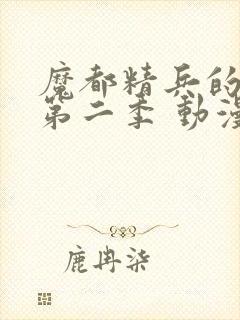 魔都精兵的
第二季 動漫
鹿冉柒